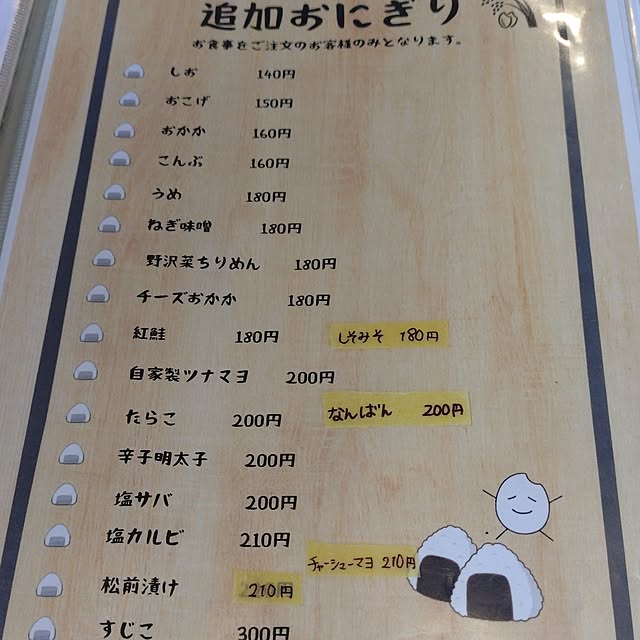 追加おにぎり
お食事をご注文のお客様のみとなります。
しお 140円
おこげ 150円
おかか 160円
こんぶ 160円
うめ 180円
ねぎ味噌 180円
野沢菜ちりめん 180円
チーズおかか 180円
紅鮭 180円 しそみそ 180円
自家製ツナマヨ 200円
たらこ 200円 なんばん 200円
辛子明太子 200円
塩サバ 200円
塩カルビ 210円
チャーシューマヨ 210円
松前漬け 210円
すじこ 300円